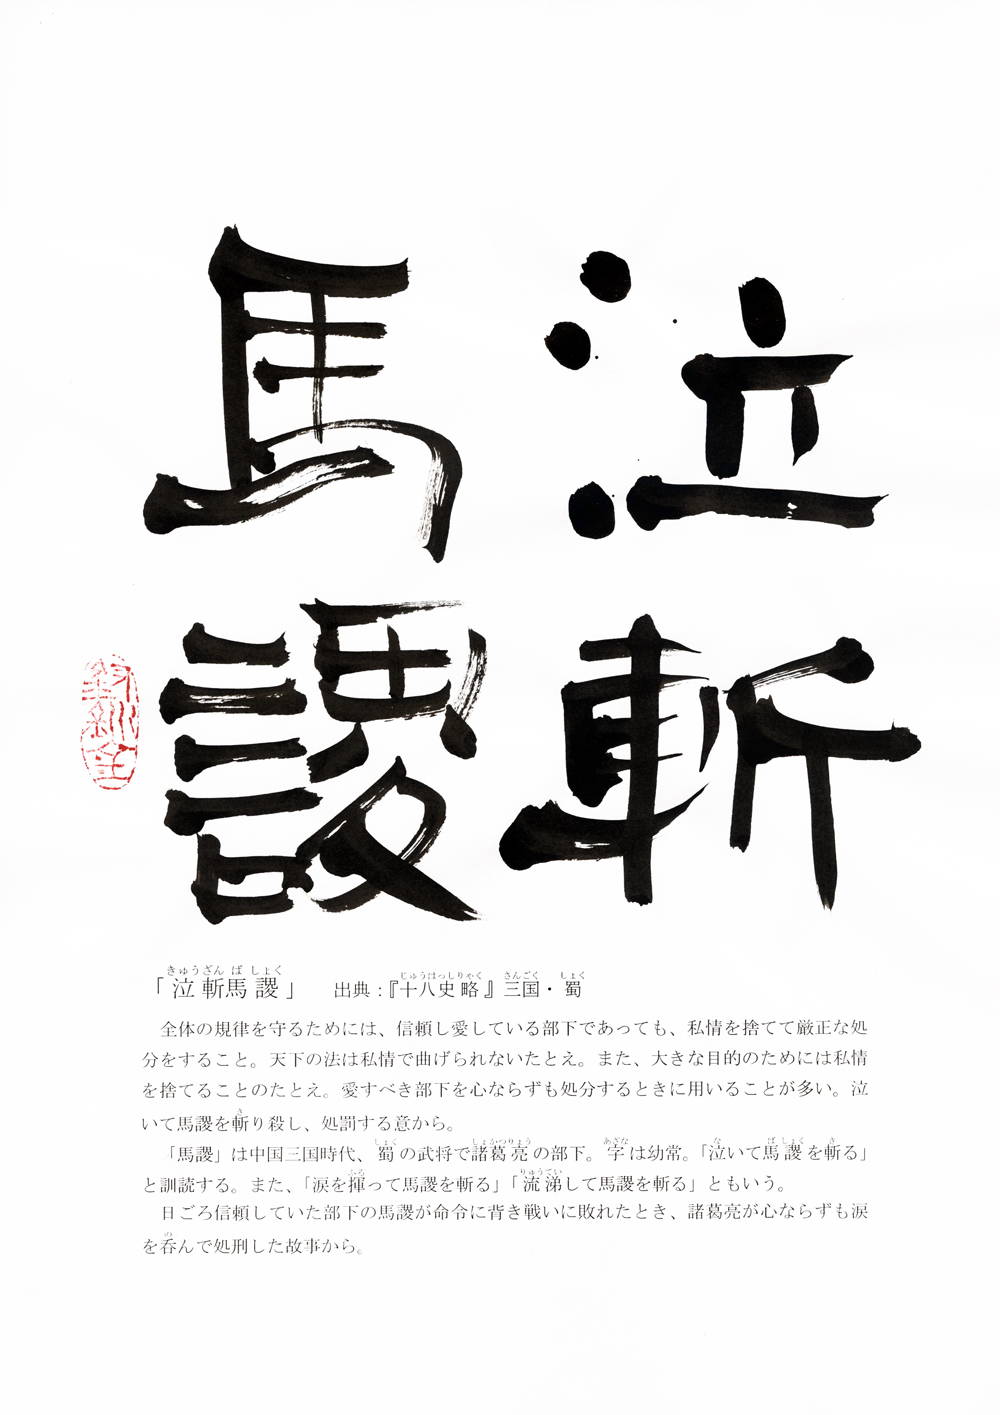 泣斬
馬謖
「泣斬馬謖」 出典:『十八史略』三国・蜀
きゅうざん ば しょく じゅうはっしりゃく さんごく しょく
全体の規律を守るためには、信頼し愛している部下であっても、私情を捨てて厳正な処
分をすること。天下の法は私情で曲げられないたとえ。また、大きな目的のためには私情
を捨てることのたとえ。愛すべき部下を心ならずも処分するときに用いることが多い。泣
いて馬謖を斬り殺し、処罰する意から。
き
「馬謖」は中国三国時代、蜀の武将で諸葛亮の部下。字は幼常。「泣いて馬謖を斬る」
しょく しょかつりょう あざな な ば しょく き
と訓読する。また、「涙を揮って馬謖を斬る」「流涕して馬謖を斬る」ともいう。
ふる りゅうてい
日ごろ信頼していた部下の馬謖が命令に背き戦いに敗れたとき、諸葛亮が心ならずも涙
を呑んで処刑した故事から。
の